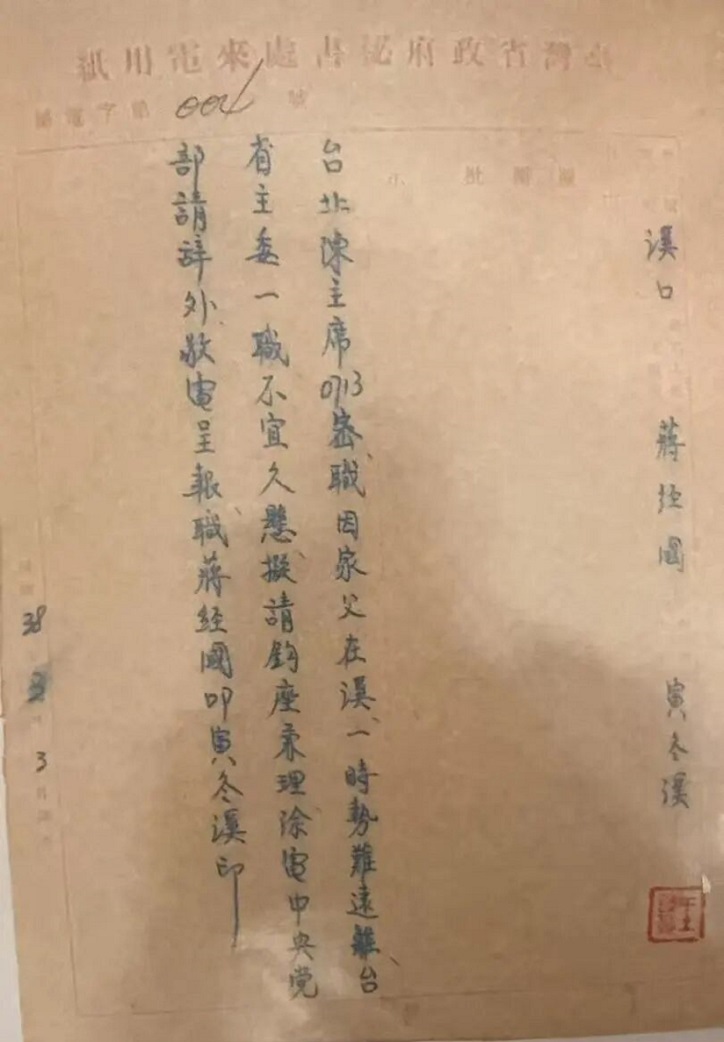 臺灣省政府秘書處來電用紙
電字第004號
批示
溪口 蔣經國 寅冬溪
台北陳主席0713密職因家父在溪、一時勢難遠離、台
省主委一職不宜久懸、擬請鈞座兼理除電中央党
部請辞外、敬電呈報職、蔣經國叩寅冬溪印
38 3 3